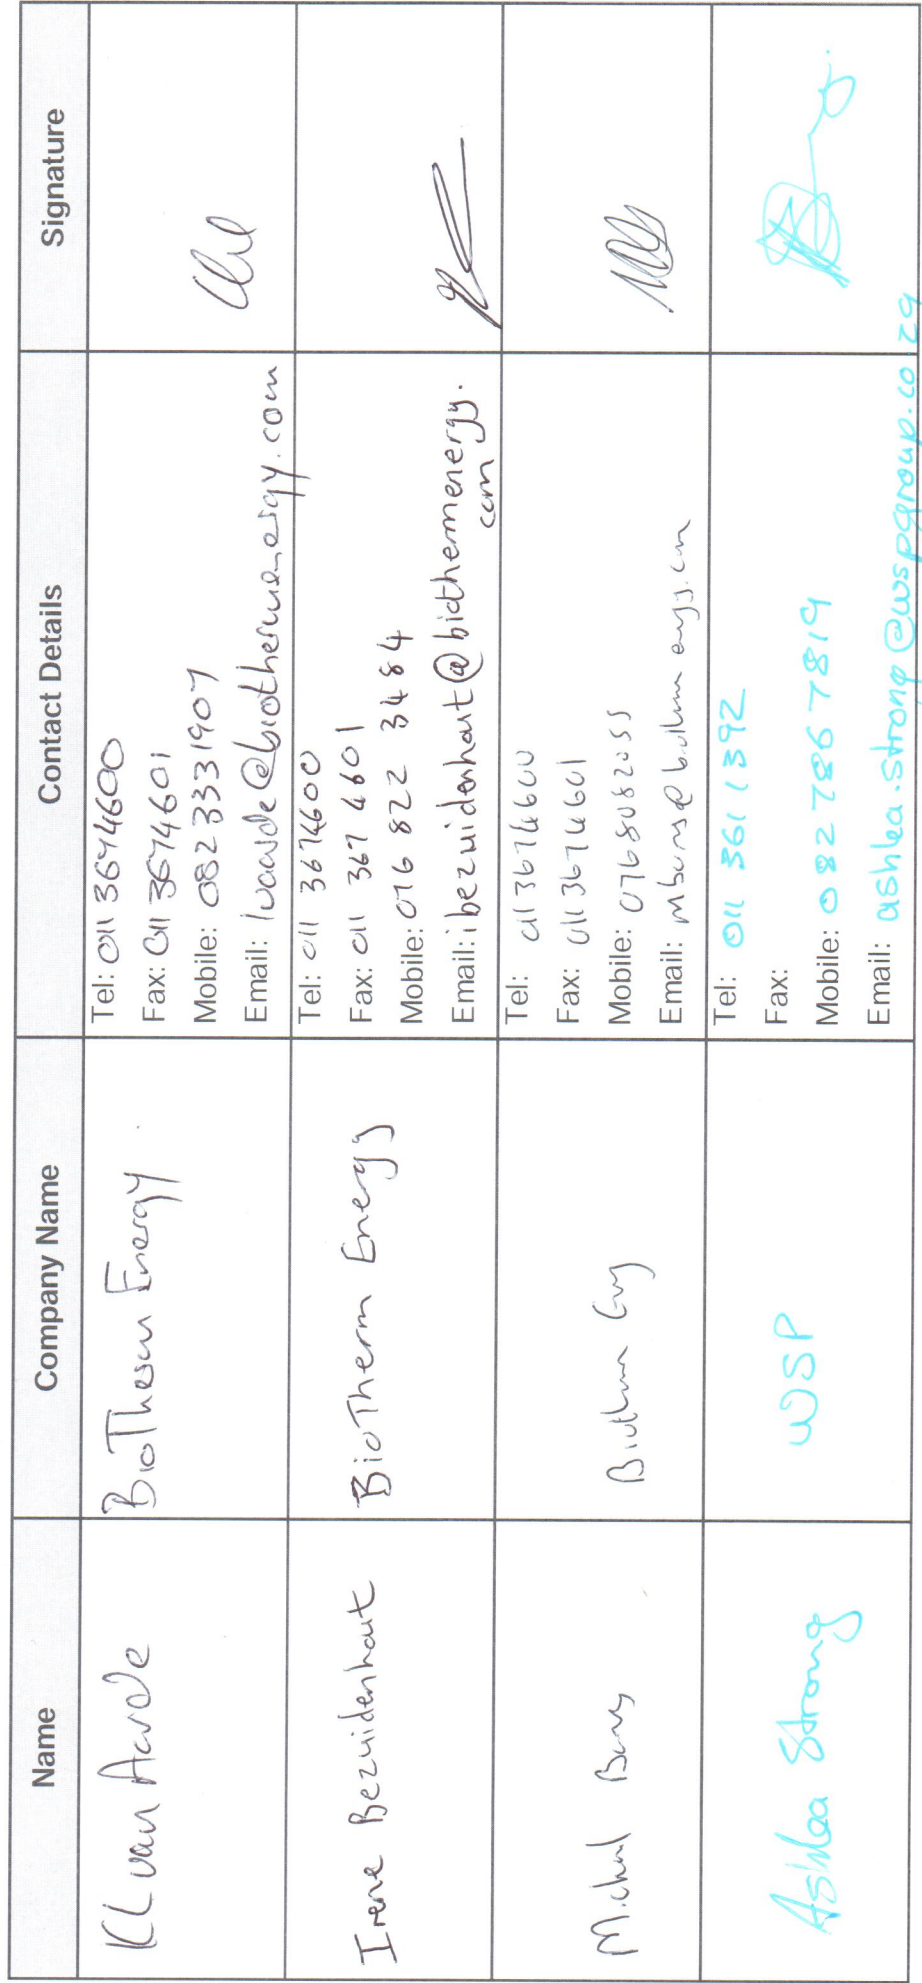 Name Company Name Contact Details Signature
KL van Aarde
BioTherm Energy
Tel: 011 3674600
Fax: 011 3674601
Mobile: 082 3331907
Email: lvaarde@biothermenergy.com
Irene Bezuidenhout
BioTherm Energy
Tel: 011 3674600
Fax: 011 367 4601
Mobile: 076 822 3484
Email: ibezuidenhout@biothermenergy.
com
Michael Barnes
Biotherm Energy
Tel: 011 3674600
Fax: 011 3674601
Mobile: 0768082055
Email:
Ashlea Strong
WSP
Tel: 011 361 1392
Fax:
Mobile: 082 786 7819
Email: ashlea.strong@wspgroup.co.za